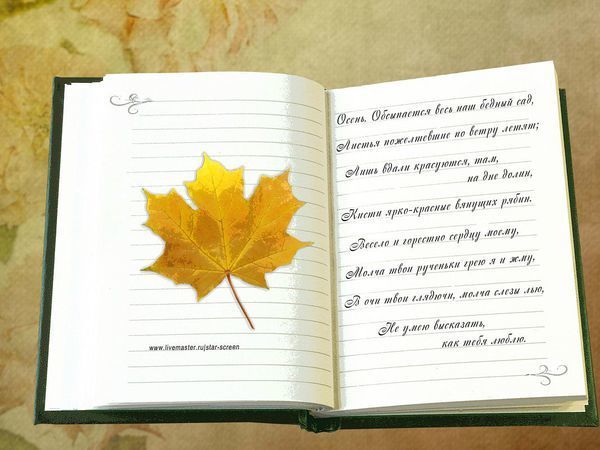 www.livemaster.ru/star-screen
Осень. Обсыпается весь наш бедный сад,
Листья пожелтевшие по ветру летят;
Лишь вдали красуются, там,
на дне долин,
Кисти ярко-красные вянущих рябин.
Весело и горестно сердцу моему,
Молча твои рученьки грею я и жму,
В очи твои глядючи, молча слезы лью,
Не умею высказать,
как тебя люблю.